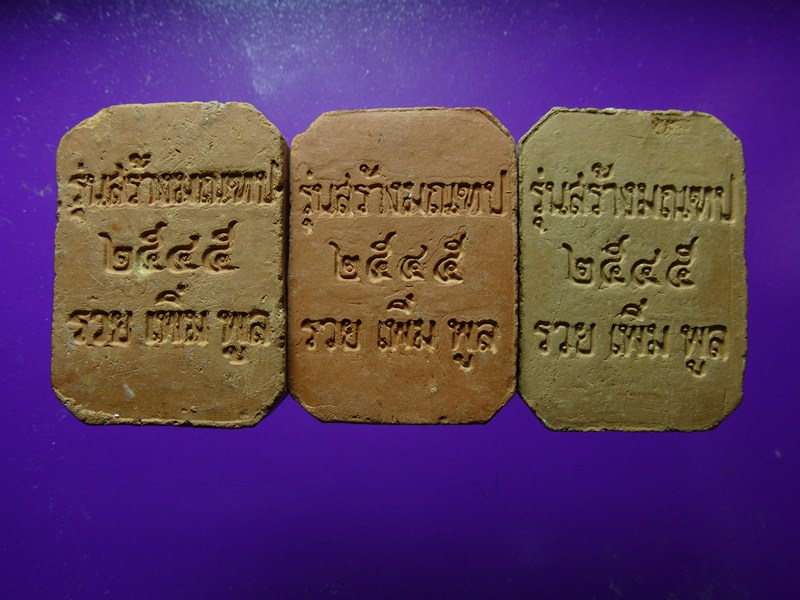 รุ่นสร้างมณฑป
๒๕๔๕
รวย เพิ่ม พูล
รุ่นสร้างมณฑป
๒๕๔๕
รวย เพิ่ม พูล
รุ่นสร้างมณฑป
๒๕๔๕
รวย เพิ่ม พูล